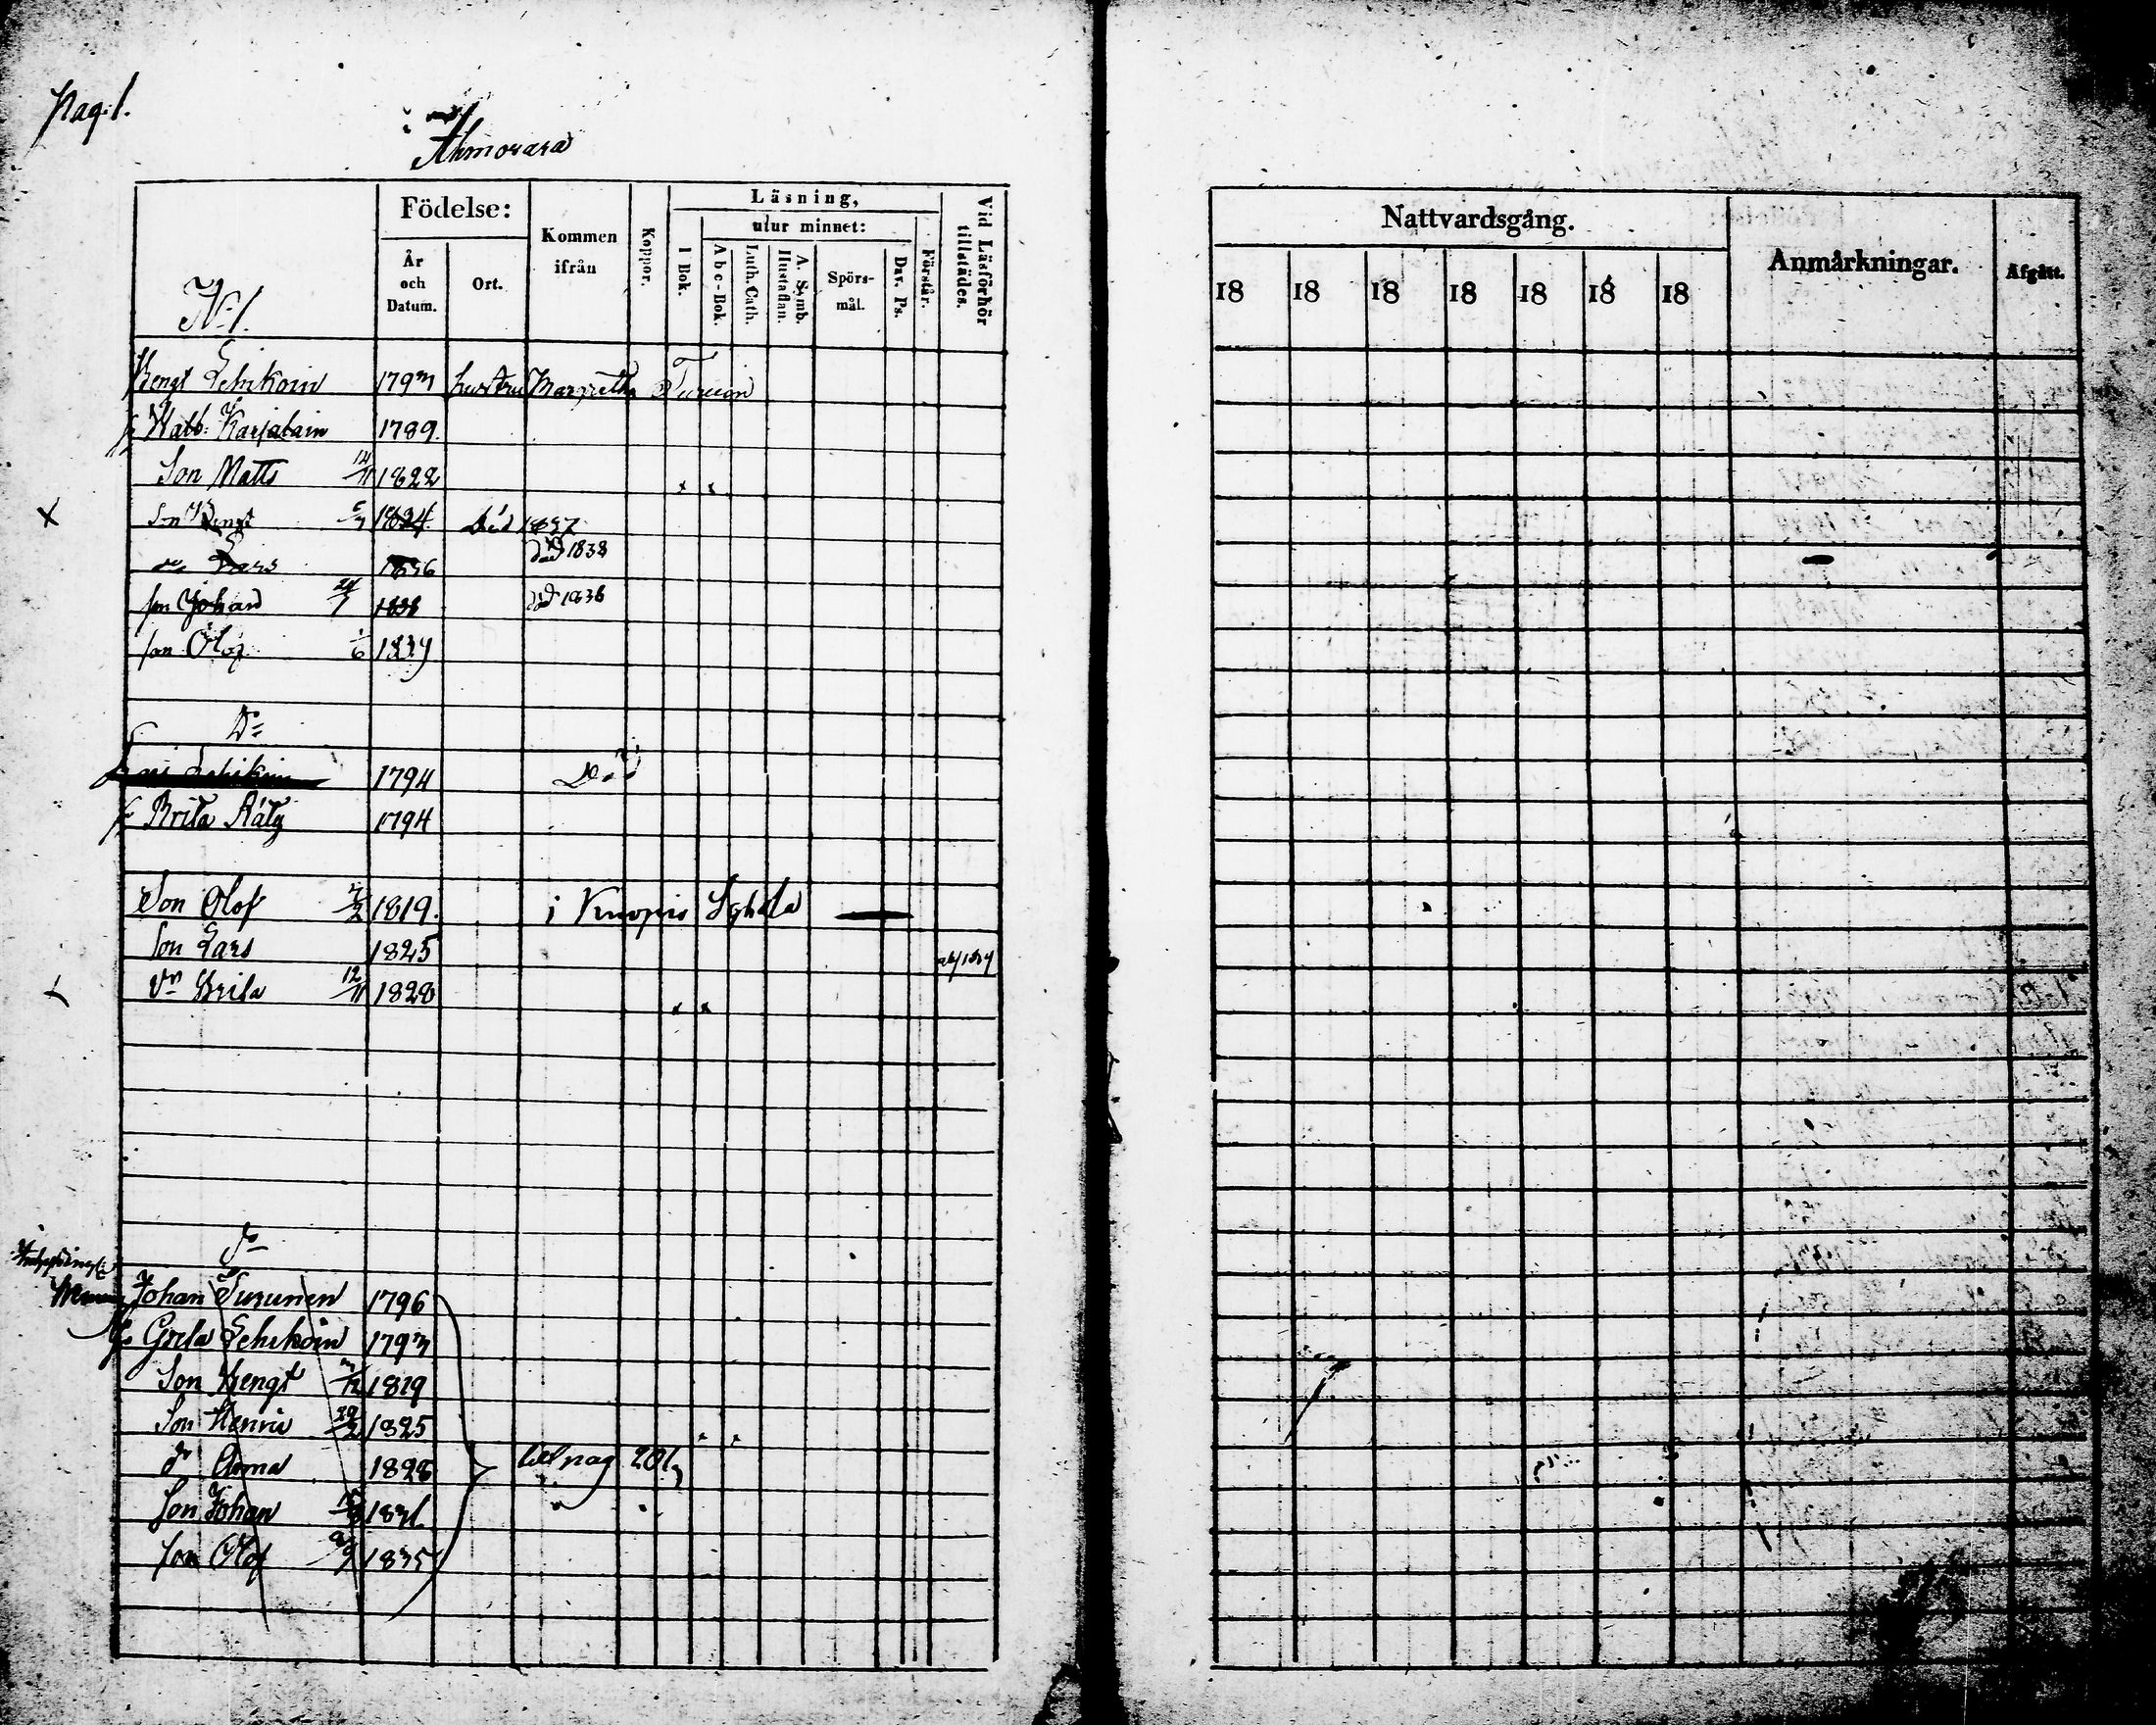 Pag: 1.
Ahmovara
Födelse:
Kommen ifrån
Koppor.
Läsning,
utur minnet:
Vid Läsförhör tillstädes.
År och Datum.
Ort.
I Bok.
Abc-Bok.
Luth. Cath.
A. Symb. Hustaflan.
Spörs-mål.
Dav. Ps.
Förstår.
Nattvardsgång.
Anmärkningar.
Afgått.
18 18 18 18 18 18 18
N:1.
Bengt Lehikoin 1797 hustru Margretha Turuen
h Walb: Karjalain 1789.
Son Matts 14/11 1822
Son Bengt 5/7 1824 död 1837
Lars 1836 död 1838
son Johan 24/7 1838 död 1838
son Olof 1/6 1839
D:o
Lehikoin 1794 Död
h Brita Räty 1794
Son Olof 7/2 1819. i Kuopio
Son Lars 1825
Dr Brita 12/11 1828
D:o
Johan Turunen 1796
h Greta Lehikoin 1797
Son Bengt 1819
Son Henric 1825
dr Anna 1828 till pag 201
Son Johan 1831
son Olof 1835